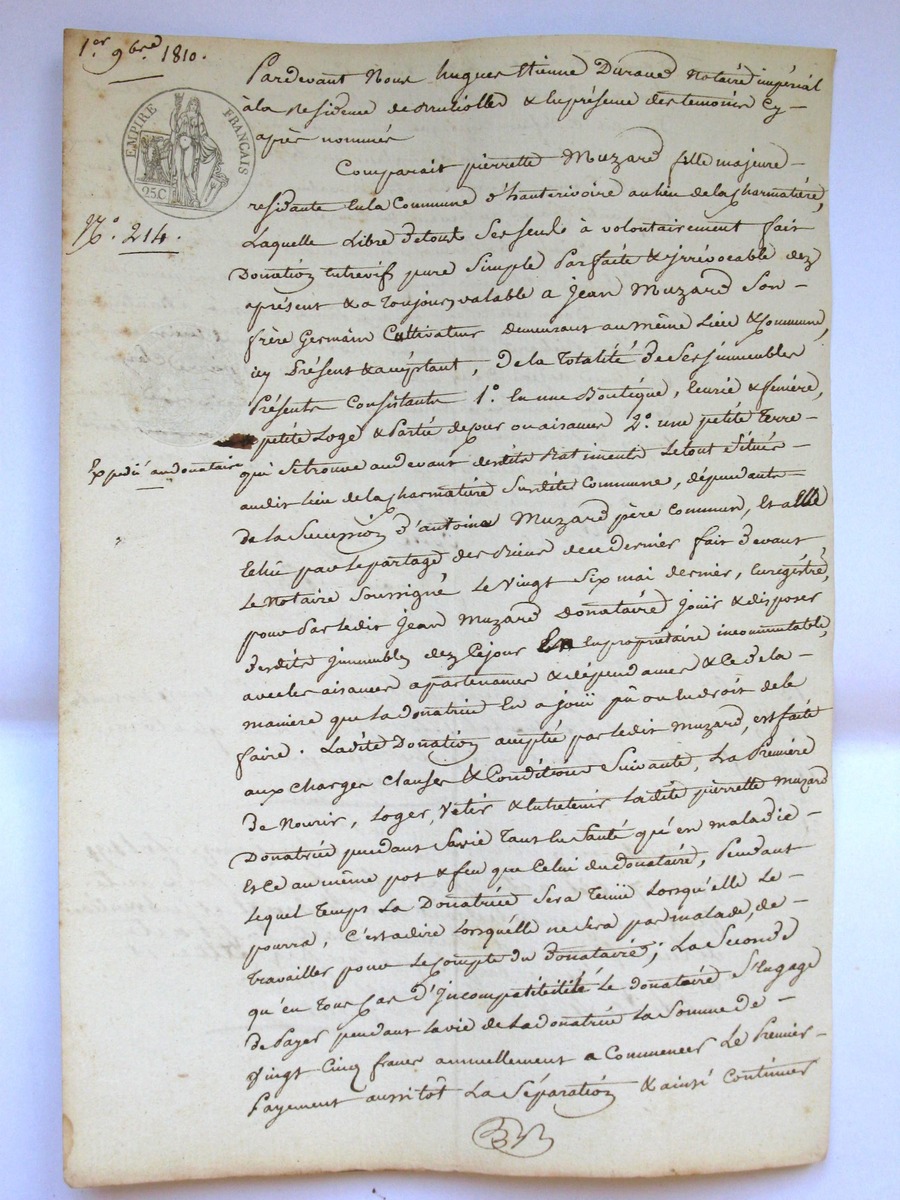 1er 9bre 1810.
EMPIRE FRANÇAIS
25C
N° 214.
Expedié au donataire
Pardevant Nous hugues Etienne Durand Notaire impérial
à la Residence de Brullolles & En présence des temoins Cy-
après nommés
Comparait pierrette Muzard fille majeure
residante En la Commune d'hauterivoire au lieu de la Charmatière,
Laquelle Libre de tout Ses seuls à volontairement fait
Donation Entrevif pure Simple Parfaite & jrrévocable dez
aprésent & a Toujours valable a Jean Muzard Son
frère Germain Cultivateur demeurant au même Lieu & Commune,
icy Présent & aceptant, de la Totalité de Ses jmmeubles
Présents Consistants 1° En une Boutique, Ecurie & feniere,
petite Loge & Partie de jour ou aisances 2° une petite Terre
qui Se trouve au devant desdits Batiments Le tout Situés
audit lieu de la Charmatière Susdite Commune, dépendants
de la Succession d'antoine Muzard père Commun, Et a Elle
Echu par le partage des Biens de ce Dernier fait devant
Le Notaire Soussigné Le Vingt Six mai dernier, Enregistré,
pour Par Ledit Jean Muzard Donataire jouir & disposer
desdits jmmeubles dez Cejour En propriétaire incommutable,
avec les aisances apartenances & dépendances & Ce de la
maniere que La donatrice En a jouï pû ou En droit de le
faire. Ladite Donation aceptée par Ledit Muzard, est faite
aux Charges Clauses & Conditions Suivante, La Première
de Nourir, Loger, Vétir & Entretenir Ladite pierrette Muzard
Donatrice pendant Sa vie Tant En Santé qu'en maladie
Et Ce au même pot & feu que Celui du donataire, Pendant
Lequel Temps La Donatrice Sera Tenüe Lorsqu'elle Le
pourra, C'est a dire Lorsqu'elle ne Sera pas malade, de
Travailler pour Le Compte du donataire; La Seconde
qu'en Tous Cas d'jncompatibilité Le donataire S'Engage
de Payer pendant La vie de La donatrice La Somme de
Vingt Cinq francs annuellement a Commencer Le Premier
Payement aussitôt La Séparation & ainsi Continuer